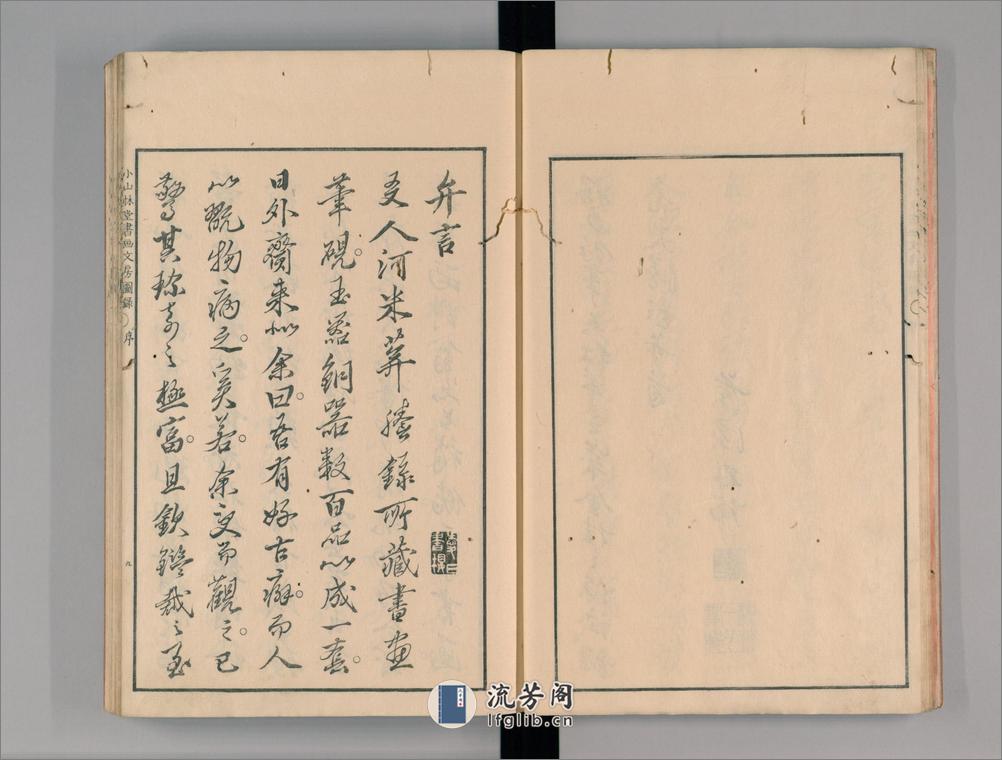 弁言
友人河米葊縢錄所藏書画
筆硯玉器銅器数百品以成一套
日外齎来似余曰吾有好古癖而人
以翫物病之奚若余受而觀之已
驚其珍奇之極富且欽鑑裁之至
小山林堂書画文房圖錄 序
九
流芳阁
lfglib.cn